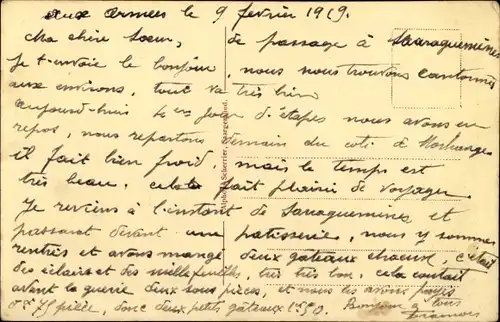 aux armées le 9 février 1919.
Ma chère Soeur, de passage à Saaraguemines
Je t'envoie le bonjour, nous nous trouvons cantonnés
aux environs, tout va très bien
aujourd'hui 1er jour d'étapes nous avons eu
repos, nous repartons demain du coté d'Morhange
il fait bien froid mais le temps est
très beau, cela fait plaisir de voyager
Je reviens à l'instant de Saaraguemines et
passant devant une patisserie, nous y sommes
rentrés et avons mangé deux gateaux chacun, c'était
des éclairs et des mille feuilles, très très bon, cela coutait
avant la guerre deux sous pièce, et nous les avons payés
0f 75 pièce, donc deux petits gâteaux 1f50. Bonjour à tous
Alphons Scherrie, Saargemünd.